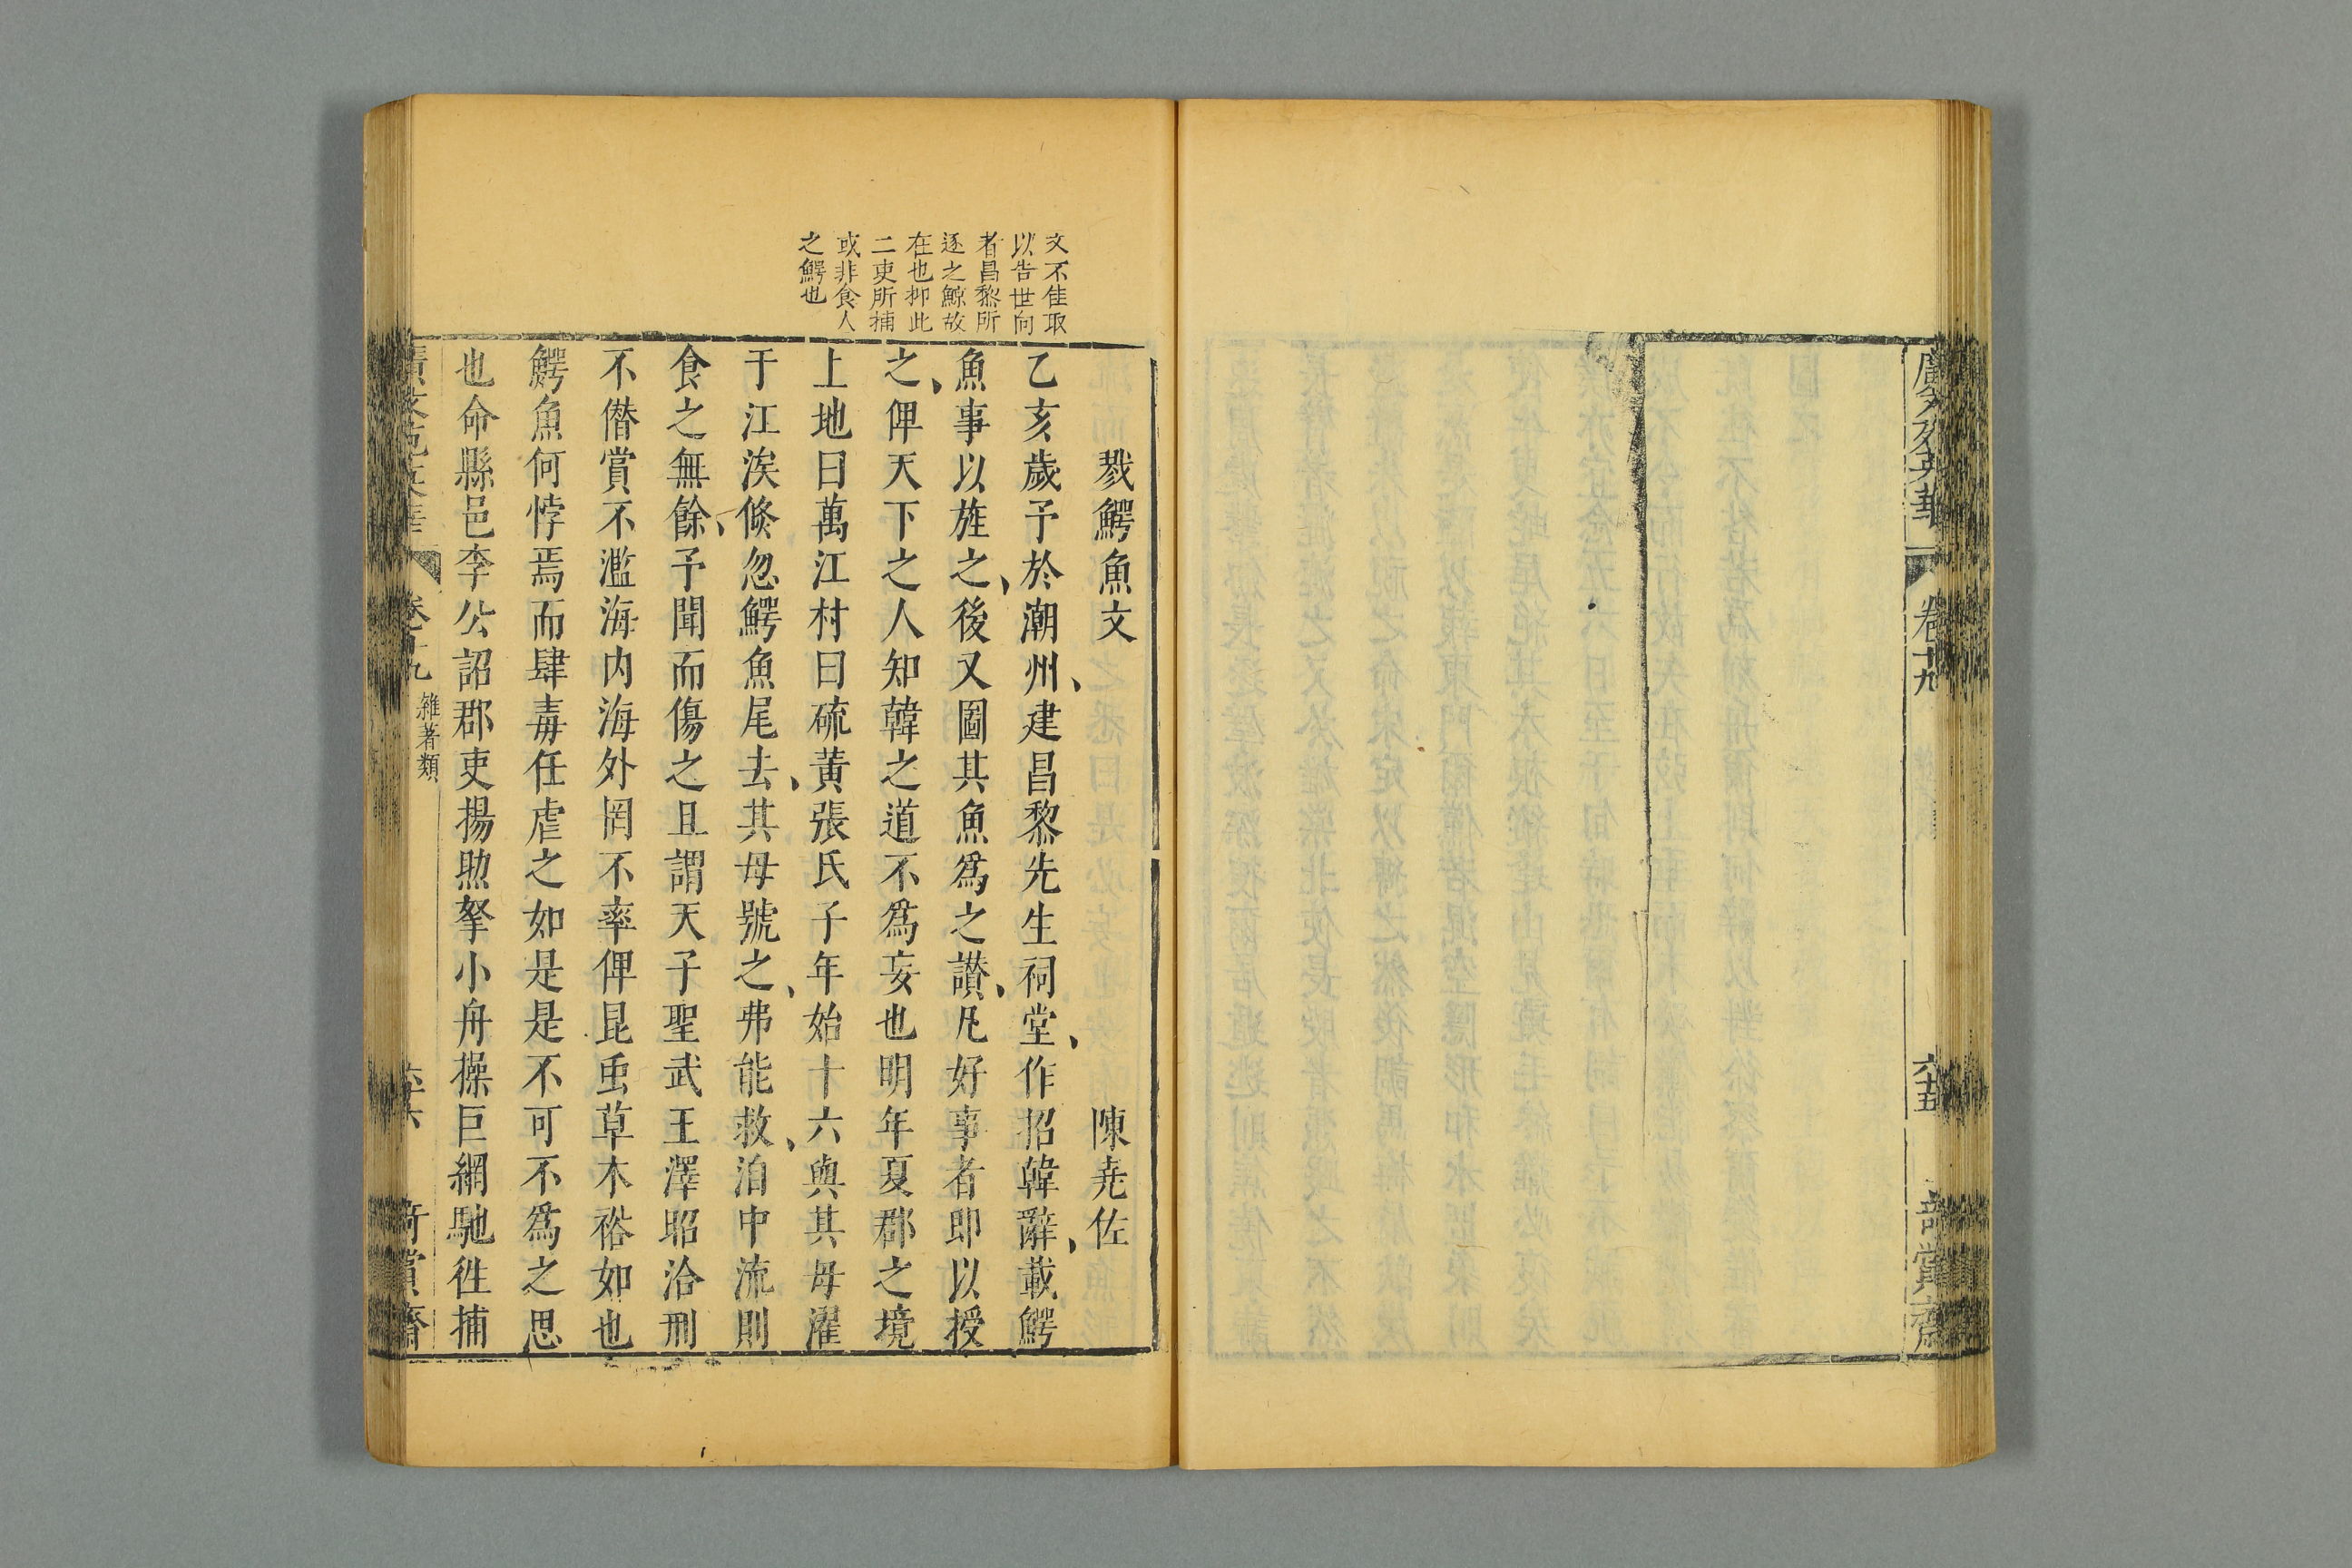 卷十九
六十五
文不佳取
以告世向
者昌黎所
逐之鯨故
在也抑此
二吏所捕
或非食人
之鰐也
戮鰐魚文
陳堯佐
乙亥歲予於潮州建昌黎先生祠堂作招韓辭載鰐
魚事以旌之後又圖其魚爲之讃凡好事者即以授
之俾天下之人知韓之道不爲妄也明年夏郡之境
上地曰萬江村曰硫黃張氏子年始十六與其母濯
于江涘倏忽鰐魚尾去其母號之弗能救洎中流則
食之無餘予聞而傷之且謂天子聖武王澤昭洽刑
不僣賞不濫海内海外罔不率俾昆虫草木裕如也
鰐魚何悖焉而肆毒任虐之如是是不可不爲之思
也命縣邑李公詔郡吏揚勲拏小舟操巨網馳徃捕
雜著類